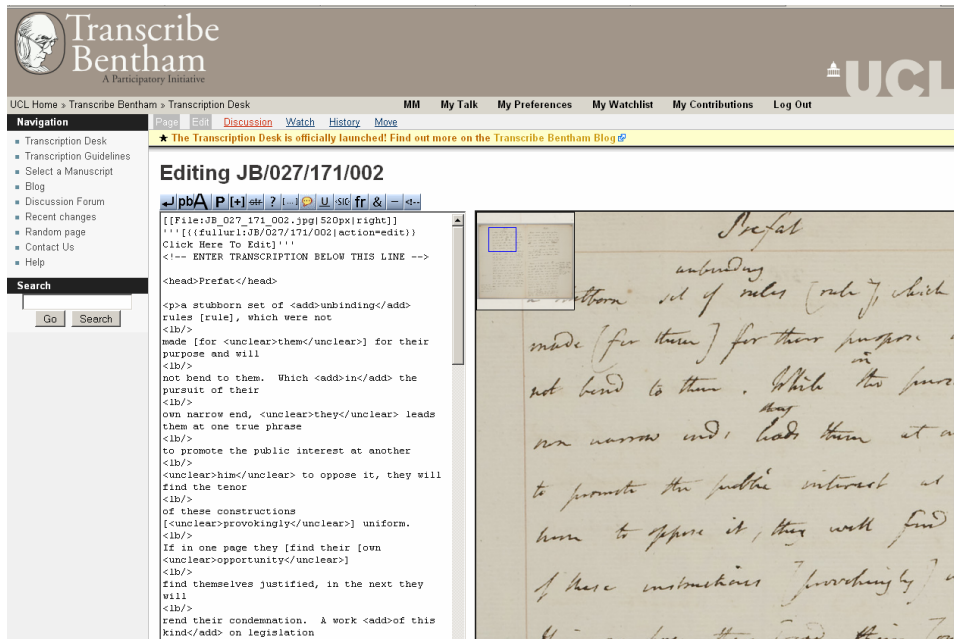 Transcribe
Bentham
A Participatory Initiative
UCL
UCL Home » Transcribe Bentham » Transcription Desk
MM My Talk My Preferences My Watchlist My Contributions Log Out
Navigation
Transcription Desk
Transcription Guidelines
Select a Manuscript
Blog
Discussion Forum
Recent changes
Random page
Contact Us
Help
Search
Go Search
Page Edit Discussion Watch History Move
★ The Transcription Desk is officially launched! Find out more on the Transcribe Bentham Blog
Editing JB/027/171/002
pb A P [+] str ? [...] U ·SIC· fr & – <!--
[[File:JB_027_171_002.jpg|520px|right]]
'''[{{fullurl:JB/027/171/002|action=edit}}
Click Here To Edit]'''
<!-- ENTER TRANSCRIPTION BELOW THIS LINE -->
<head>Prefat</head>
<p>a stubborn set of <add>unbinding</add>
rules [rule], which were not
<lb/>
made [for <unclear>them</unclear>] for their
purpose and will
<lb/>
not bend to them.  Which <add>in</add> the
pursuit of their
<lb/>
own narrow end, <unclear>they</unclear> leads
them at one true phrase
<lb/>
to promote the public interest at another
<lb/>
<unclear>him</unclear> to oppose it, they will
find the tenor
<lb/>
of these constructions
[<unclear>provokingly</unclear>] uniform.
<lb/>
If in one page they [find their [own
<unclear>opportunity</unclear>]
<lb/>
find themselves justified, in the next they
will
<lb/>
rend their condemnation.  A work <add>of this
kind</add> on legislation
Prefat
unbending
stubborn set of rules [rule], which
made [for them] for their purpose
in
not bend to them. While the
they
own narrow ends leads them at
to promote the public interest at
to oppose it, they will find
of these instructions [provokingly]